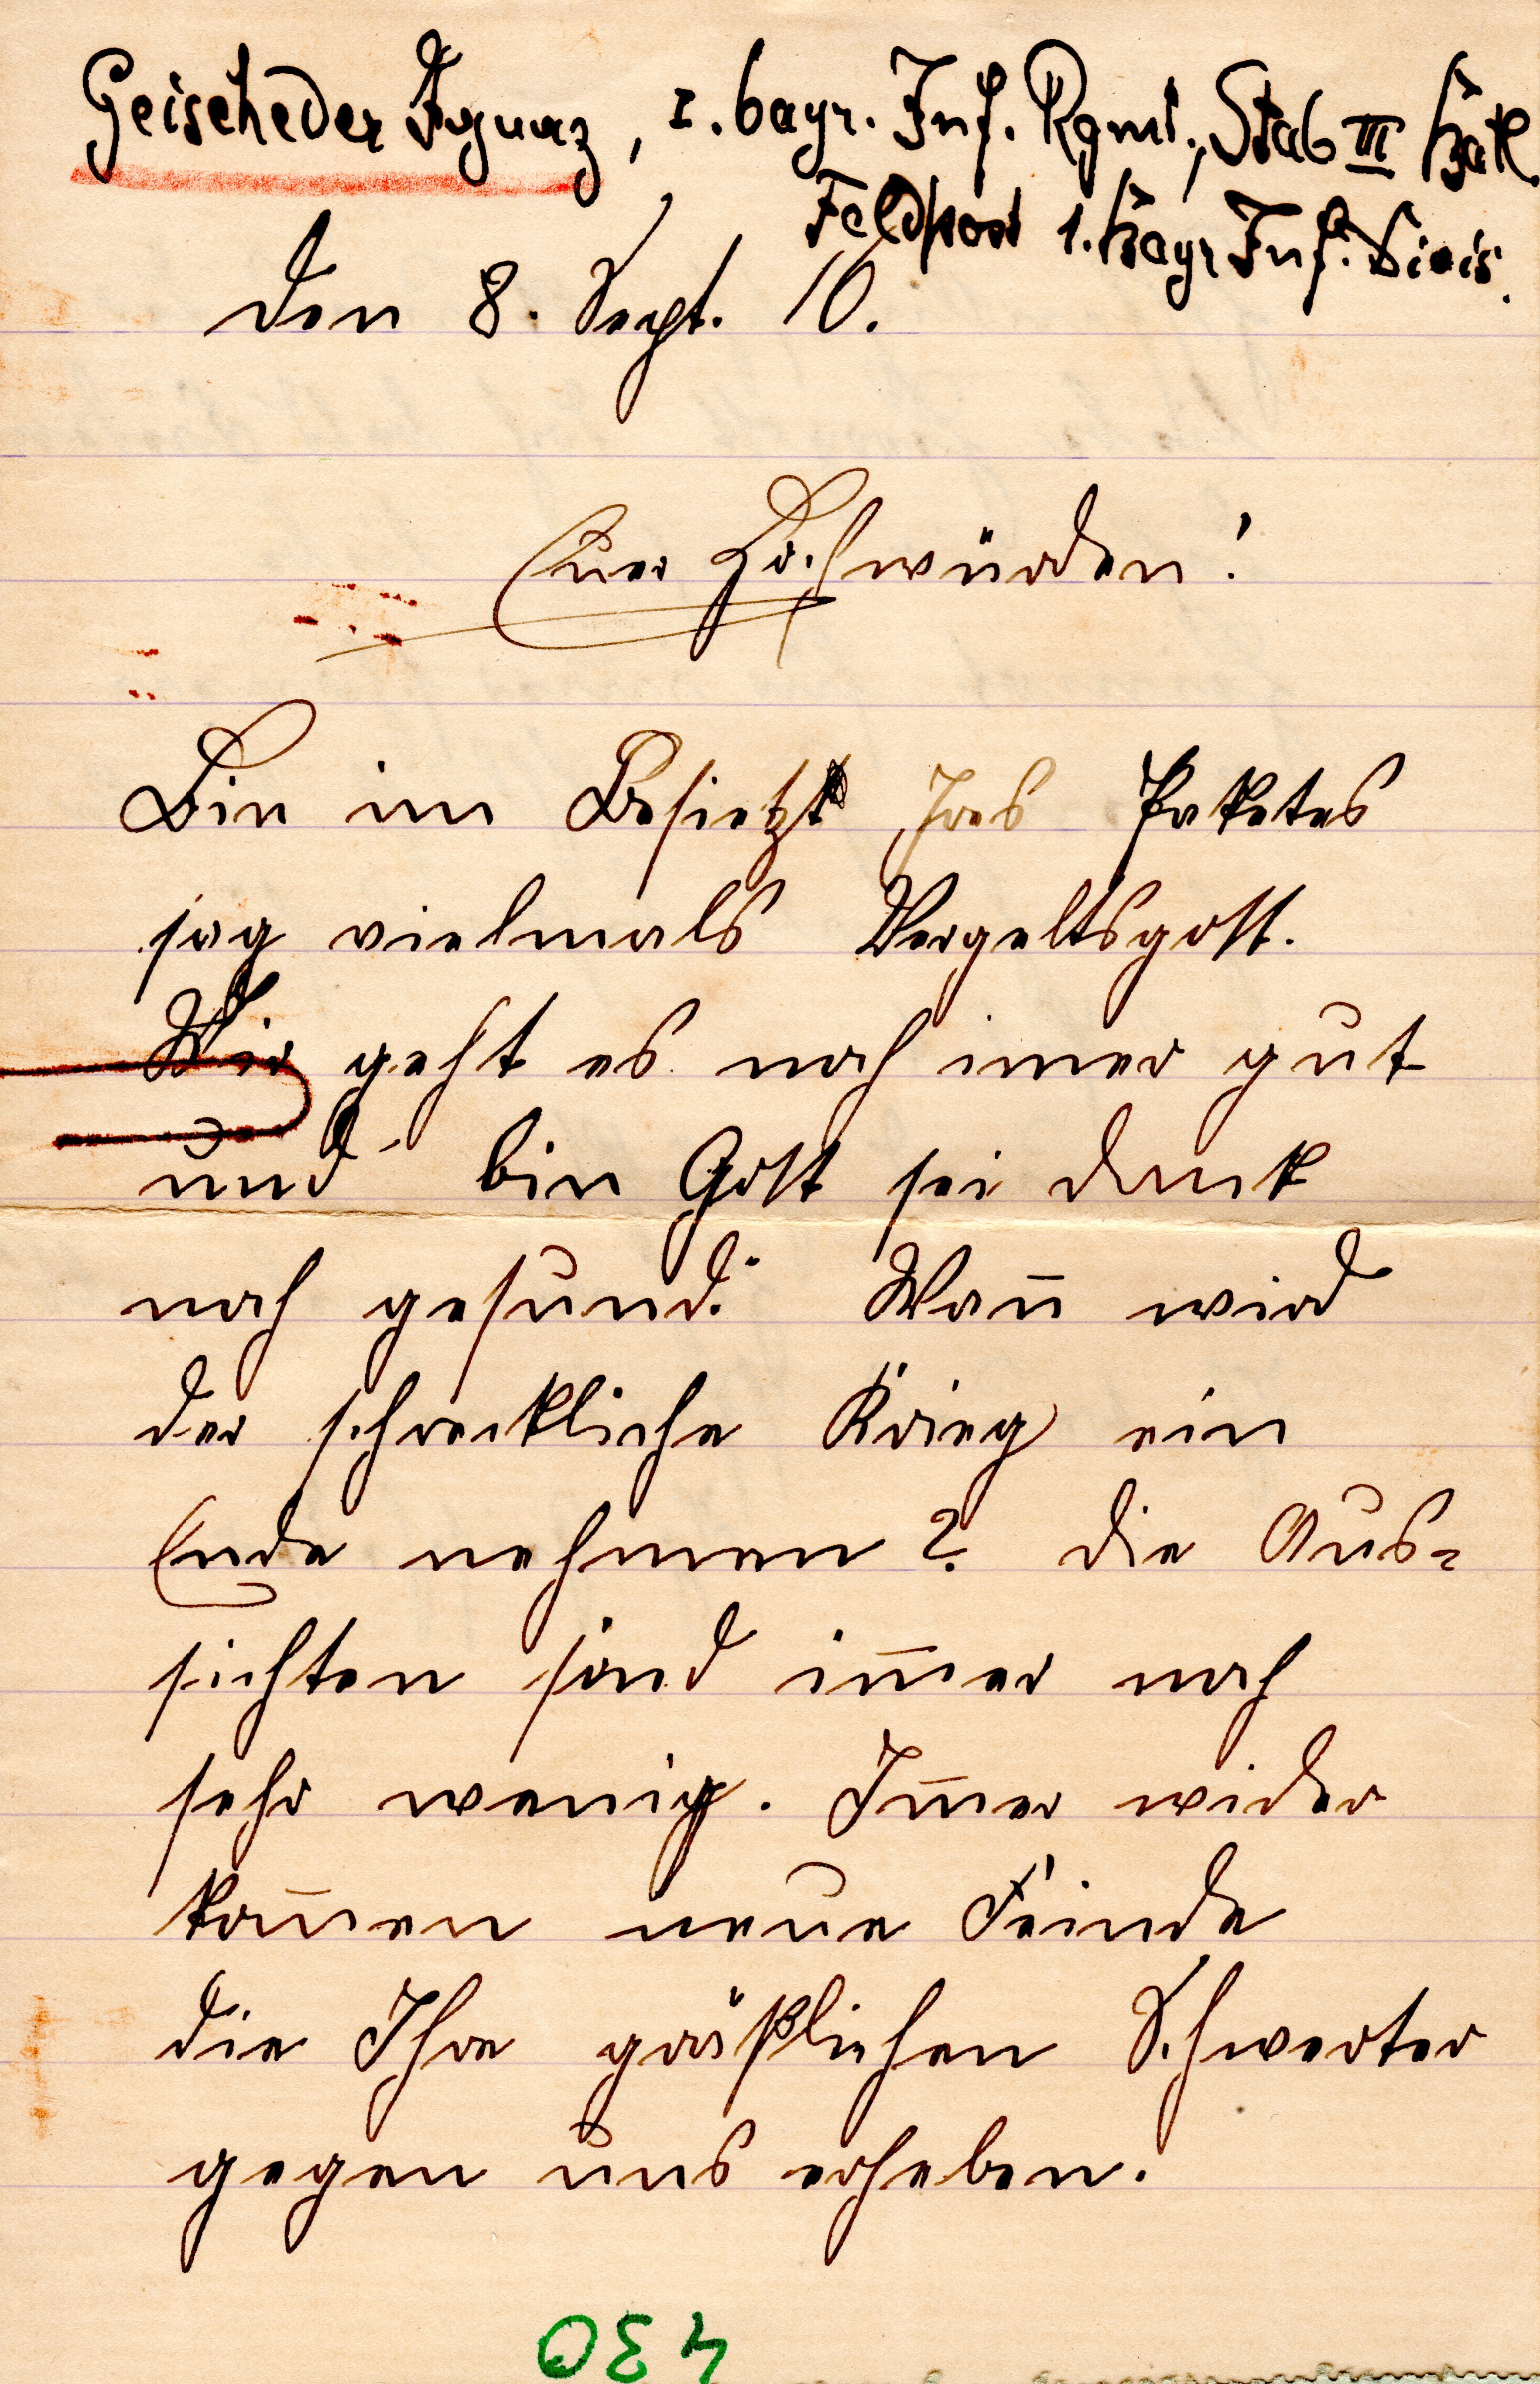 Geischeder Ignaz, 1. bayr. Inf. Rgmt., Stab III Batl
Feldpost 1. bayr Inf. Divis.
den 8. Sept. 16.
Euer Hochwürden!
Bin im Besietzt Ires Paketes
sag vielmals Vergeltsgott.
Mir geht es noch imer gut
und bin Gott sei dank
noch gesund. Wan̅ wird
der schreckliche Krieg ein
Ende nehmen? die Aus-
sichten sind im̅er noch
sehr wenig. Im̅er wider
kom̅en neue Feinde
die Ihre gräßlichen Schwerter
gegen uns erheben.
430